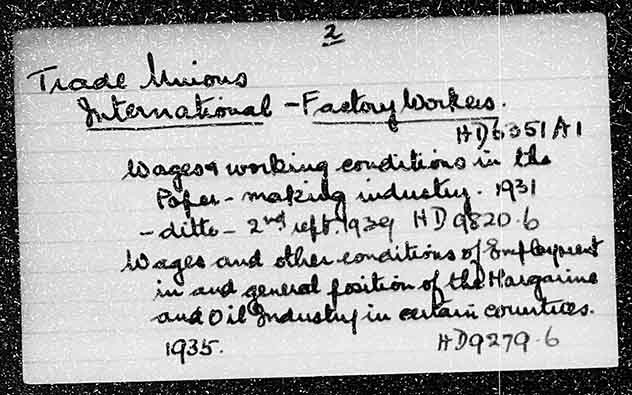 2
Trade Unions
International - Factory Workers.
HD6351 A1
Wages & working conditions in the
Paper-making industry. 1931
- ditto - 2nd rept. 1939 HD9820.6
Wages and other conditions of Employment
in and general position of the Margarine
and Oil Industry in certain countries.
1935. HD9279.6